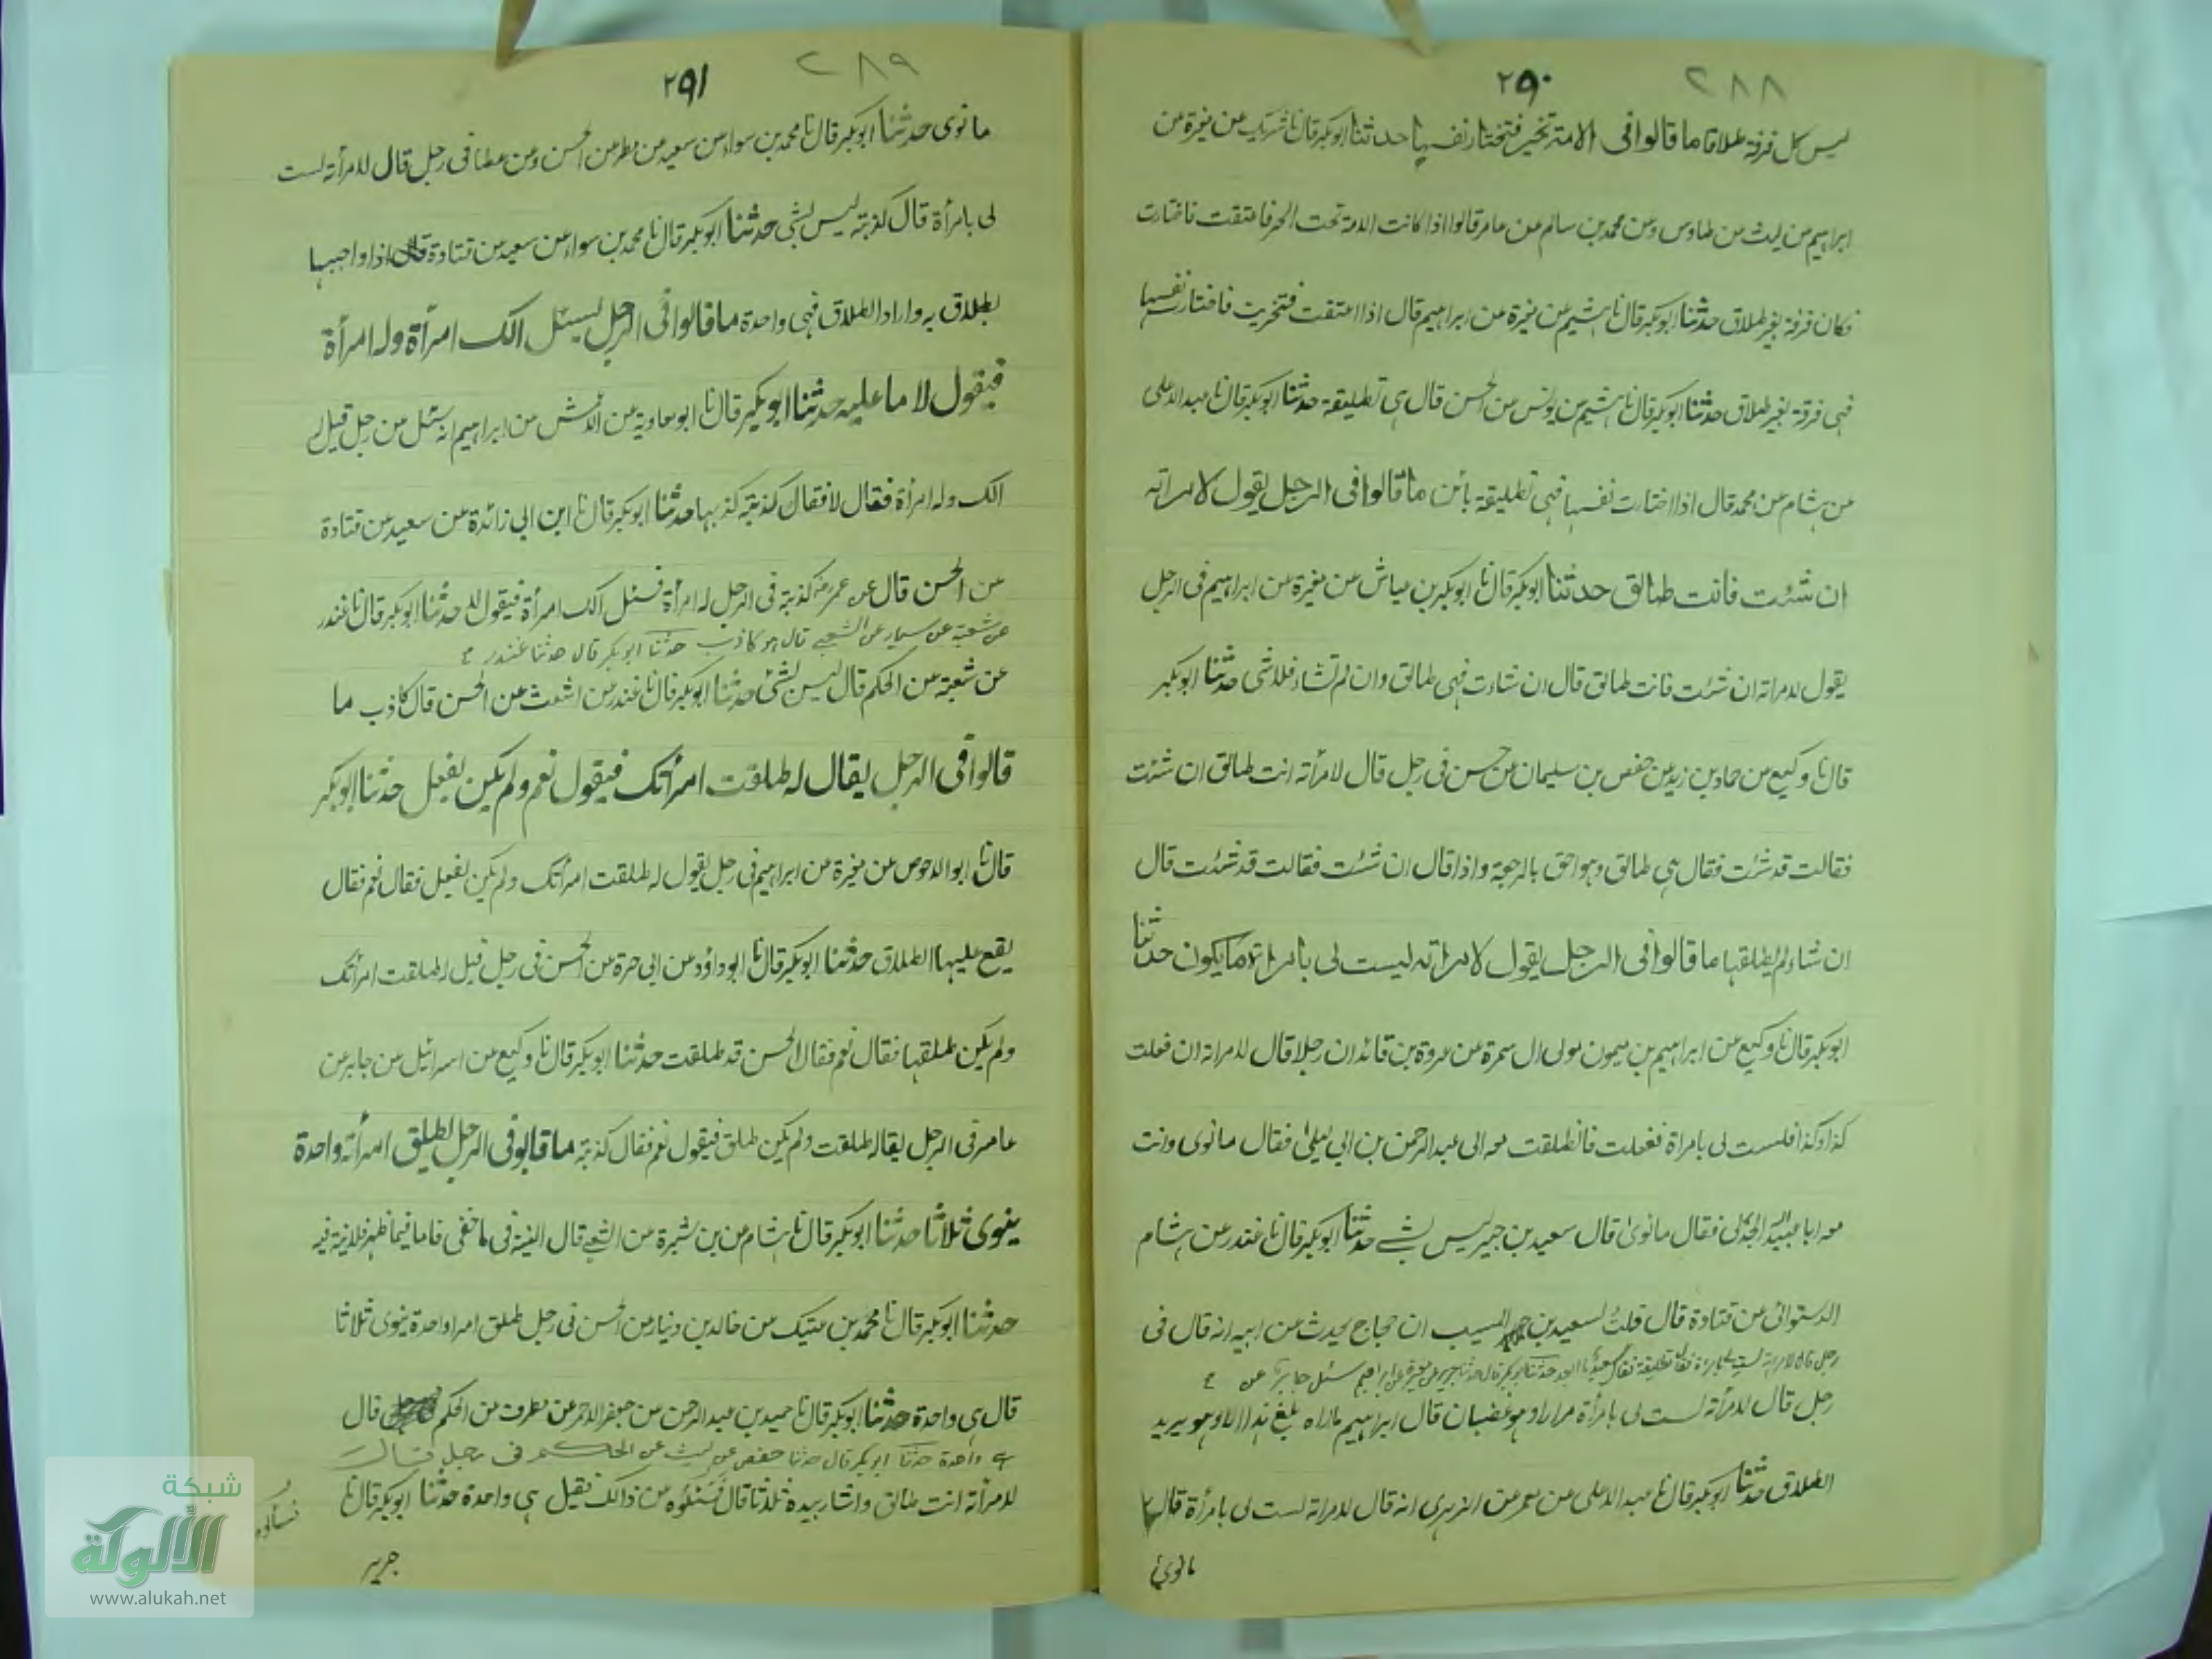 ٢٨٨
٢٩٠
ليس كل فرقة طلاقا ما قالوا فى الامة تخير فتختار نفسها حدثنا ابوبكر قال نا شريك عن مغيرة عن
ابراهيم عن ليث عن طاوس وعن محمد بن سالم عن عامر قالوا اذا كانت الامة تحت الحر فاعتقت فاختارت
فكان فرقة بغير طلاق حدثنا ابوبكر قال نا هشيم عن مغيرة عن ابراهيم قال اذا اعتقت فتخيرت فاختار نفسها
فهى فرقة بغير طلاق حدثنا ابوبكر قال نا هشيم عن يونس عن الحسن قال هى تطليقة حدثنا ابوبكر قال نا عبد الاعلى
عن هشام عن محمد قال اذا اختارت نفسها فهى تطليقة بائن ما قالوا فى الرجل يقول لامراته
ان شئت فانت طالق حدثنا ابوبكر قال نا ابوبكر بن عياش عن مغيرة عن ابراهيم فى الرجل
يقول لامراته ان شئت فانت طالق قال ان شاءت فهى طالق وان لم تشاء فلا شى حدثنا ابوبكر
قال نا وكيع عن حماد بن زيد عن حفص بن سليمان عن حسن فى رجل قال لامرأته انت طالق ان شئت
فقالت قد شئت فقال هى طالق وهو احق بالرجعة واذا قال ان شئت فقالت قد شئت قال
ان شاء لم يطلقها ما قالوا فى الرجل يقول لامراته ليست لى بامراة ما يكون حدثنا
ابوبكر قال نا وكيع عن ابراهيم بن ميمون مولى ال سمرة عن عروة بن قائد ان رجلا قال لامراته ان فعلت
كذا وكذا فلست لى بامراة ففعلت فانطلقت معه الى عبد الرحمن بن ابي ليلى فقال ما نوى واتت
معه ابا عبيد الله الجدلى فقال ما نوى قال سعيد بن جبير ليس بشئ حدثنا ابوبكر قال نا غندر عن هشام
الدستوائى عن قتادة قال قلت لسعيد بن المسيب ان حجاج يحدث عن ابيه انه قال فى
رجل قال لامراته لست لى بامرءة فقال تطليقة فقال سعيد حدثنا ابوبكر قال حدثنا جرير عن مغيرة عن ابراهيم سئل عن
رجل قال لامرأته لست لى بامرأة مرارا وهو غضبان قال ابراهيم ما اراه بلغ هذا الا وهو يريد
الطلاق حدثنا ابوبكر قال نا عبد الاعلى عن معمر عن الزهرى انه قال لامراته لست لى بامرأة قال
ما نوى
٢٨٩
٢٩١
ما نوى حدثنا ابوبكر قال نا محمد بن سواء عن سعيد عن مطر عن الحسن وعن عطا فى رجل قال لامرأته لست
لى بامرأة قال كذبته ليس بشى حدثنا ابوبكر قال نا محمد بن سواء عن سعيد عن قتادة قال اذا واجبها
بطلاق به واراد الطلاق فهى واحدة ما قالوا فى الرجل يسئل الك امرأة وله امرأة
فيقول لا ما عليه حدثنا ابوبكر قال نا ابو معاوية عن الاعمش عن ابراهيم انه سئل عن رجل قيل له
الك وله امرأة فقال لا فقال كذبة كذبها حدثنا ابوبكر قال نا ابن ابى زائدة عن سعيد عن قتادة
عن الحسن قال عن عمر كذبة فى الرجل له امرأة فسئل الك امرأة فيقول لا حدثنا ابوبكر قال نا غندر
عن شعبة عن سيار عن الشعبى قال هو كاذب حدثنا ابوبكر قال حدثنا غندر
عن شعبة عن الحكم قال ليس بشئ حدثنا ابوبكر قال نا غندر عن اشعث عن الحسن قال كاذب ما
قالوا فى الرجل يقال له طلقت امرأتك فيقول نعم ولم يكن يفعل حدثنا ابوبكر
قال نا ابو الاحوص عن مغيرة عن ابراهيم فى رجل يقول له طلقت امرأتك ولم يكن يفعل فقال نعم فقال
يقع عليها الطلاق حدثنا ابوبكر قال نا ابو داؤد عن ابى حرة عن الحسن فى رجل قيل له طلقت امرأتك
ولم يكن طلقها فقال نعم فقال الحسن قد طلقت حدثنا ابوبكر قال نا وكيع عن اسرائيل عن جابر عن
عامر فى الرجل يقال له طلقت ولم يكن طلق فيقول نعم فقال كذبة ما قالوا فى الرجل يطلق امرأته واحدة
ينوى ثلاثا حدثنا ابوبكر قال نا هشام عن بن شبرمة عن الشعبى قال النية فى ما خفى فاما فيما ظهر فلا نية فيه
حدثنا ابوبكر قال نا محمد بن عتيك عن خالد بن دينار عن الحسن فى رجل طلق امرا واحدة ينوى ثلاثا
قال هى واحدة حدثنا ابوبكر قال نا حميد بن عبد الرحمن عن جعفر الاحمر عن مطرف عن الحكم قال
هى واحدة حدثنا ابوبكر قال حدثنا حفص عن ليث عن الحكم فى رجل قال
لامرأته انت طالق واشار بيده ثلاثا قال فسئلوه عن ذالك فقيل هى واحدة حدثنا ابوبكر قال نا
نسألوه
جرير
شبكة
الألوكة
www.alukah.net